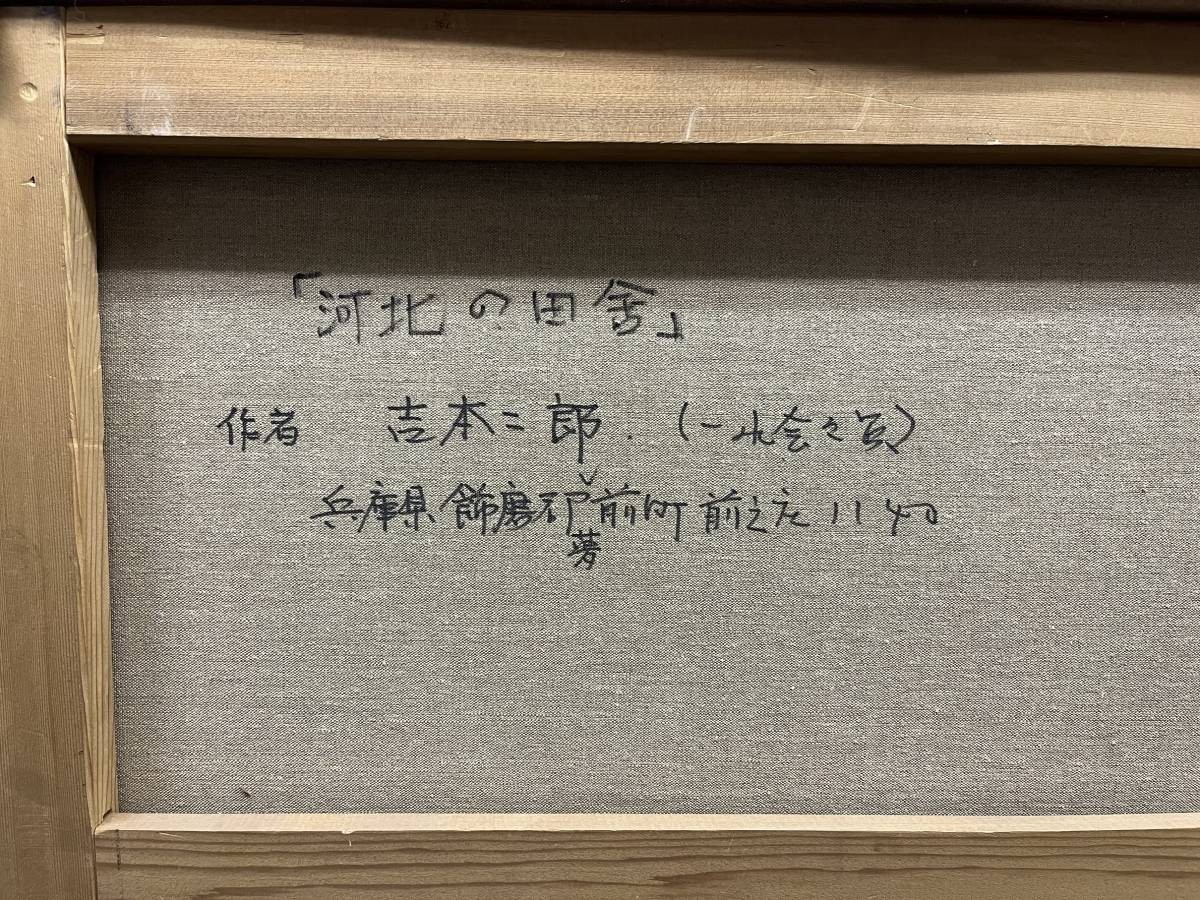 「河北の田舎」
作者 吉本二郎.(一水会々員)
兵庫県飾磨郡夢前町前之庄1140